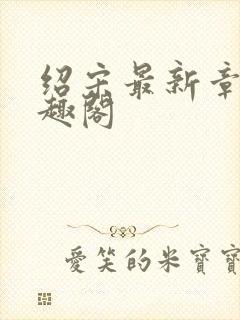 绍宋最新章
趣阁
爱笑的米寶寶